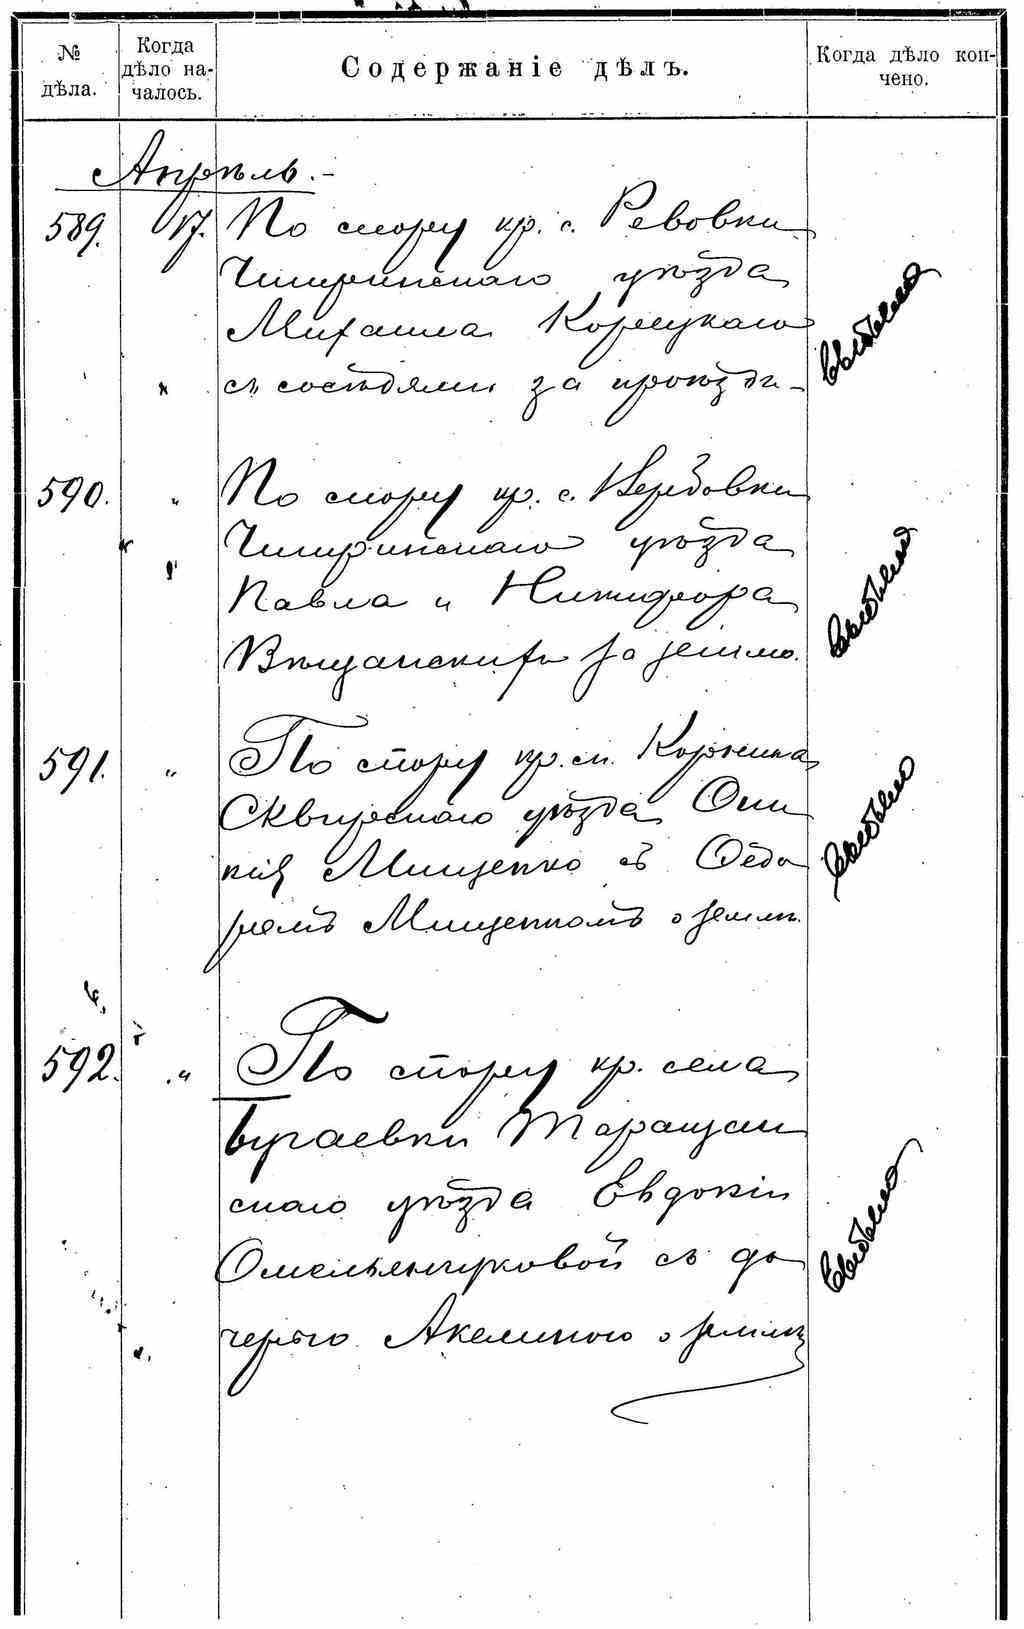 № дѣла.
Когда дѣло на-
чалось.
Содержаніе дѣлъ.
Когда дѣло кон-
чено.
Апрѣль.-
589. 17. По спору кр. с. Ревовки
Чигиринскаго уѣзда
Михаила Корецкаго
съ сосѣдями за проѣздъ-
выбыло
590. " По спору кр. с. Вербовки
Чигиринскаго уѣзда
Павла и Никифора
за землю.
выбыло
591. " По спору кр. м. Корнина
Сквирскаго уѣзда
Мищенко съ Ѳедо
ромъ Мищенкомъ о землѣ.
выбыло
592. " По спору кр. села
Бугаевки Таращан
скаго уѣзда Евдокіи
Омельянчуковой съ до
черью Акелиною о землѣ
выбыло